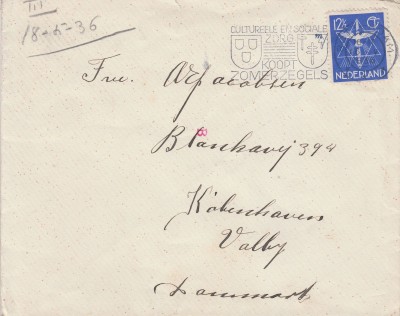 III
18-5-36
CULTUREELE EN SOCIALE
ZORG
KOOPT
ZOMERZEGELS
12½ Ct
NEDERLAND
Fru. Jacobsen
B
Blankavej 394
Köbenhaven
Valby
Danmark